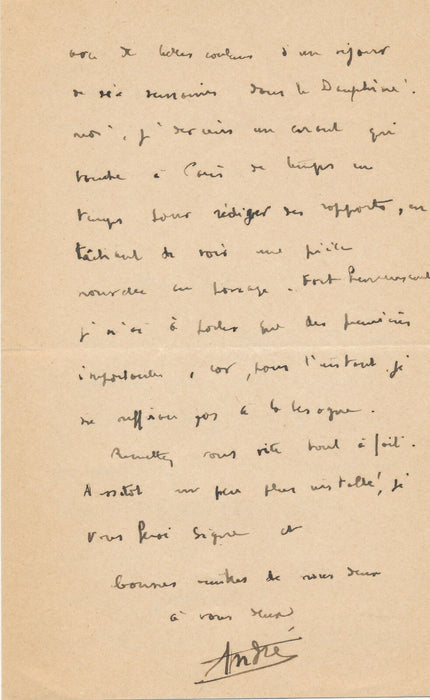 avec de belles couleurs d'un séjour
de six semaines dans le Dauphiné.
moi, je deviens un errant qui
tombe à Paris de temps en
temps pour rédiger des rapports, en
tâchant de voir une pièce
nouvelle au passage. Fort heureusement
je n'ai à parler que des premières
importantes, car, pour l'instant je
ne suffirais pas à la besogne.
Remettez vous vite tout à fait.
Aussitôt un peu plus installé, je
vous ferai signe et
bonnes amitiés de nous deux
à vous deux
André